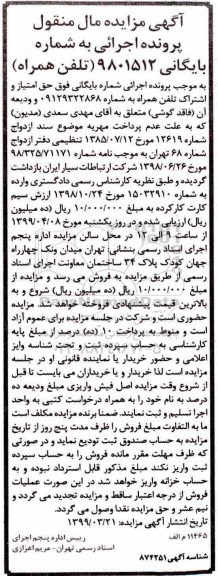 آگهی مزایده مال منقول
پرونده اجرائی به شماره
بایگانی ۹۸۰۱۵۱۲ (تلفن همراه)
به موجب پرونده اجرائی شماره بایگانی فوق حق امتیاز و
اشتراک تلفن همراه به شماره ۰۹۱۲۹۳۲۲۸۶۸ و ودیعه
آن (فاقد گوشی) متعلق به آقای مهدی سعدی (مدیون)
که به علت عدم پرداخت مهریه موضوع سند ازدواج
شماره ۱۲۶۱۹ مورخ ۱۳۸۵/۰۷/۱۲ تنظیمی دفتر ازدواج
شماره ۶۸ تهران به موجب نامه شماره ۹۸/۳۲۵/۷۱۱۷۱
مورخ ۱۳۹۸/۰۶/۲۶ شرکت ارتباطات سیار ایران بازداشت
گردیده و طبق نظریه کارشناس رسمی دادگستری وارده
شماره ۱۵۰۳۲۹۱۰ مورخ ۱۳۹۸/۱۰/۲۴ ارزش سیم
کارت کارکرده به مبلغ ۱۰/۰۰۰/۰۰۰ ریال (ده میلیون
ریال) ارزیابی شده و در روز یکشنبه مورخ ۱۳۹۹/۰۴/۰۸
از ساعت ۹ الی ۱۲ در محل سالن مزایده اداره پنجم
اجرای اسناد رسمی بنشانی: تهران میدان ونک چهارراه
جهان کودک پلاک ۳۴ ساختمان معاونت اجرای اسناد
رسمی از طریق مزایده به فروش می رسد و مزایده از
مبلغ ۱۰/۰۰۰/۰۰۰ ریال (ده میلیون ریال) شروع و به
بالاترین قیمت پیشنهادی فروخته خواهد شد. مزایده
حضوری است و شرکت در جلسه مزایده برای عموم آزاد
است و منوط به پرداخت ۱۰ (ده) درصد از مبلغ پایه
کارشناسی به حساب سپرده ثبت و تحت شناسه واریز
اعلامی و حضور خریدار یا نماینده قانونی او در جلسه
مزایده است لذا خریدار و یا خریداران می بایست تا قبل
از شروع وقت مزایده اصل فیش واریزی مبلغ ودیعه ده
درصد به نام خود را به همراه درخواست کتبی به واحد
اجرا تسلیم و ثبت نمایند. ضمنا برنده مزایده مکلف است
ما به التفاوت مبلغ فروش را ظرف مدت پنج روز از تاریخ
مزایده به حساب صندوق ثبت تودیع نماید و در صورتی
که ظرف مهلت مقرر مانده فروش را به حساب سپرده
ثبت واریز نکند مبلغ مذکور قابل استرداد نبوده و به
حساب خزانه واریز خواهد شد در این صورت عملیات
فروش از درجه اعتبار ساقط و مزایده تجدید می گردد و
نیم عشر و حق مزایده نقدا وصول می گردد.
تاریخ انتشار آگهی مزایده: ۱۳۹۹/۰۳/۲۱
۱۱۴۶۵ م الف
رییس اداره پنجم اجرای
اسناد رسمی تهران- مریم اعزازی
شناسه آگهی ۸۷۴۲۵۱